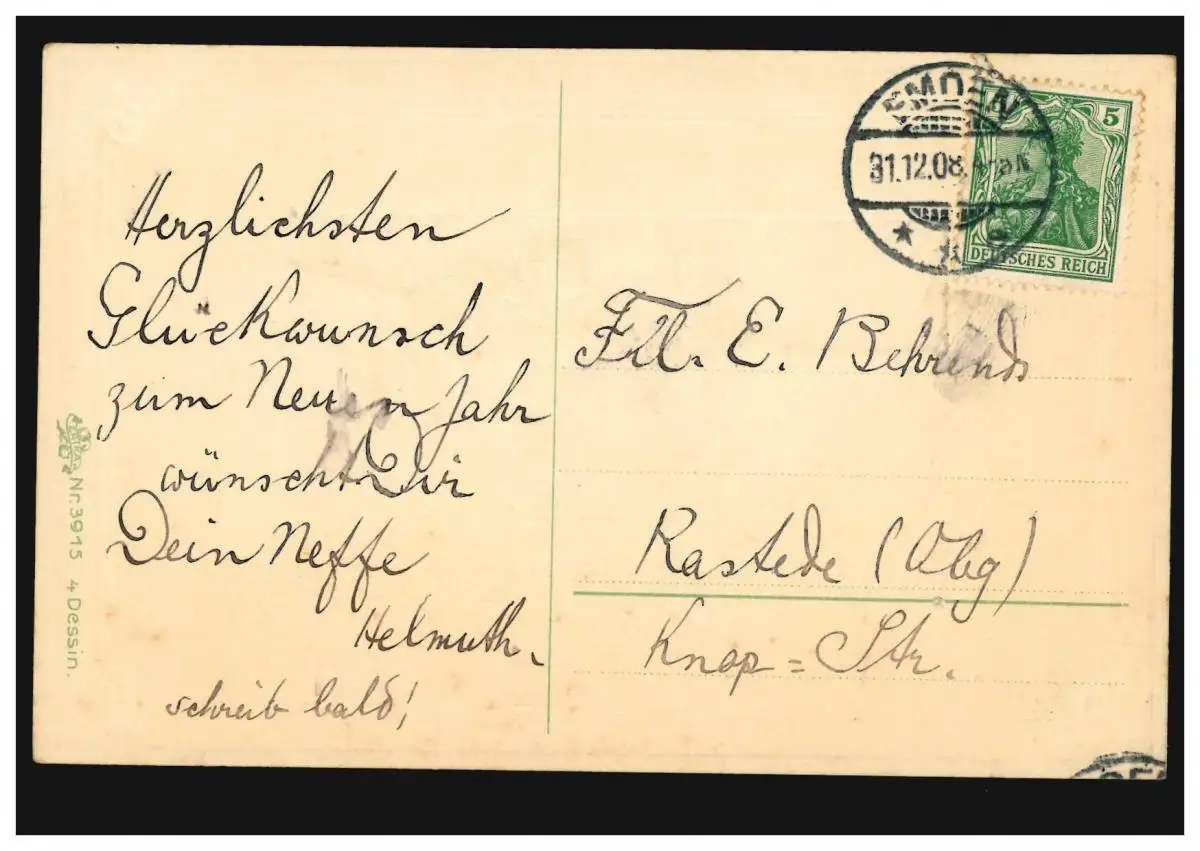 Herzlichsten
Glückwunsch
zum Neuen Jahr
wünscht Dir
Dein Neffe
Helmuth.
schreib bald!
Nr. 3915 4 Dessin.
EMDEN
31.12.08.
5
DEUTSCHES REICH
Frl. E. Behrends
Rastede (Olbg)
Knop=Str.